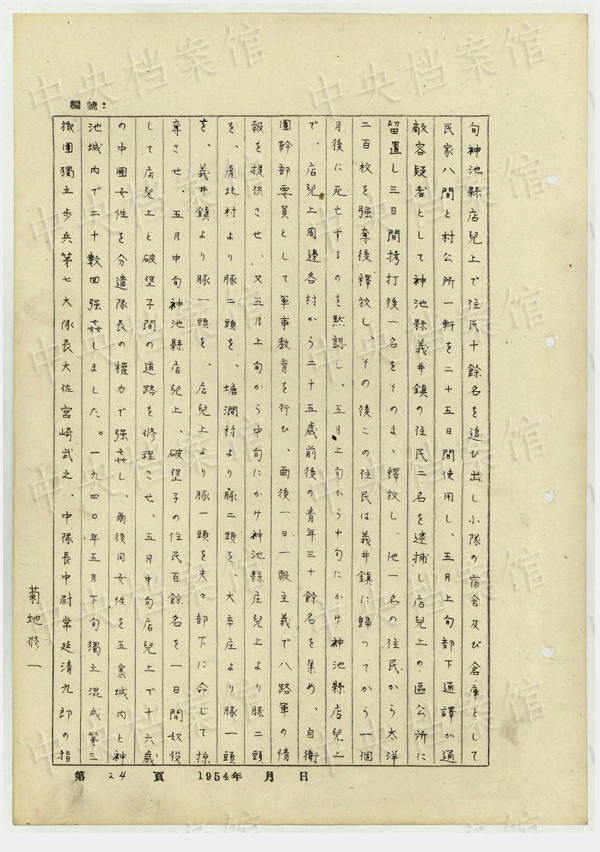 編號：
旬神池縣店兒上で住民十餘名を追ひ出し小隊の宿舍及び倉庫として
民家八間と村公所一軒を二十五日間使用し、五月上旬部下通譯が通
敵容疑者として神池縣義井鎮の住民二名を逮捕し店兒上の區公所に
留置し三日間拷打後一名をそのまゝ釋放し、他一名の住民から大洋
二百枚を強奪後釋放し、その後この住民は義井鎮に歸つてから一個
月後に死亡するのを默認し、五月上旬から中旬にかけ神池縣店兒上
で、店兒上周邊各村から二十五歲前後の青年三十餘名を集め、自衛
團幹部要員として軍事教育を行ひ、爾後一日一報主義で八路軍の情
報を提供させ、又五月上旬から中旬にかけ神池縣庄兒上より豚二頭
を、虎北村より豚二頭を、塘澗村より豚二頭を、大辛庄より豚一頭
を、義井鎮より豚一頭を、店兒上より豚一頭を夫々部下に命じて掠
奪させ、五月中旬神池縣店兒上、破堡子の住民百餘名を一日間奴役
して店兒上と破堡子間の道路を修理させ、五月中旬店兒上で十六歲
の中國女性を分遣隊長の權力で強姦し、爾後同女性を五寨城內と神
池城內で二十數回強姦しました。一九四〇年五月下旬獨立混成第三
旅團獨立步兵第七大隊長大佐宮崎武之、中隊長中尉常延清九郎の指
菊地修一
第 24 頁 1954年 月 日
中央档案馆